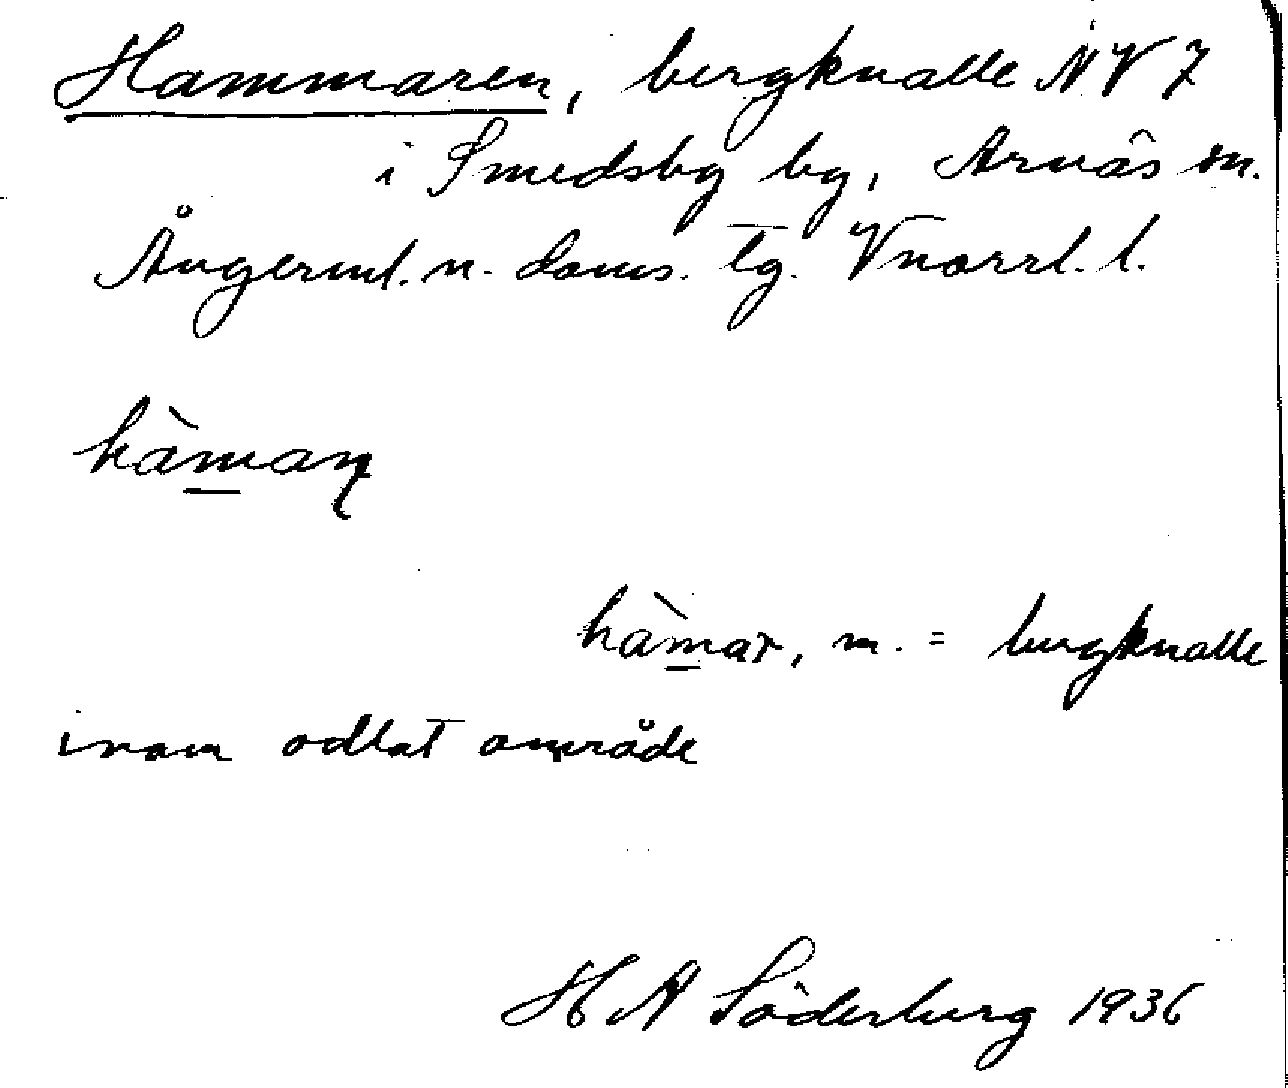 Hammaren, bergknalle NV 7
i Smedsby by, Arnäs sn.
Ångerml. n. doms. tg. Vnorrl. l.
hàman
hàmar, m. = bergknalle
inom odlat område
H A Söderberg 1936